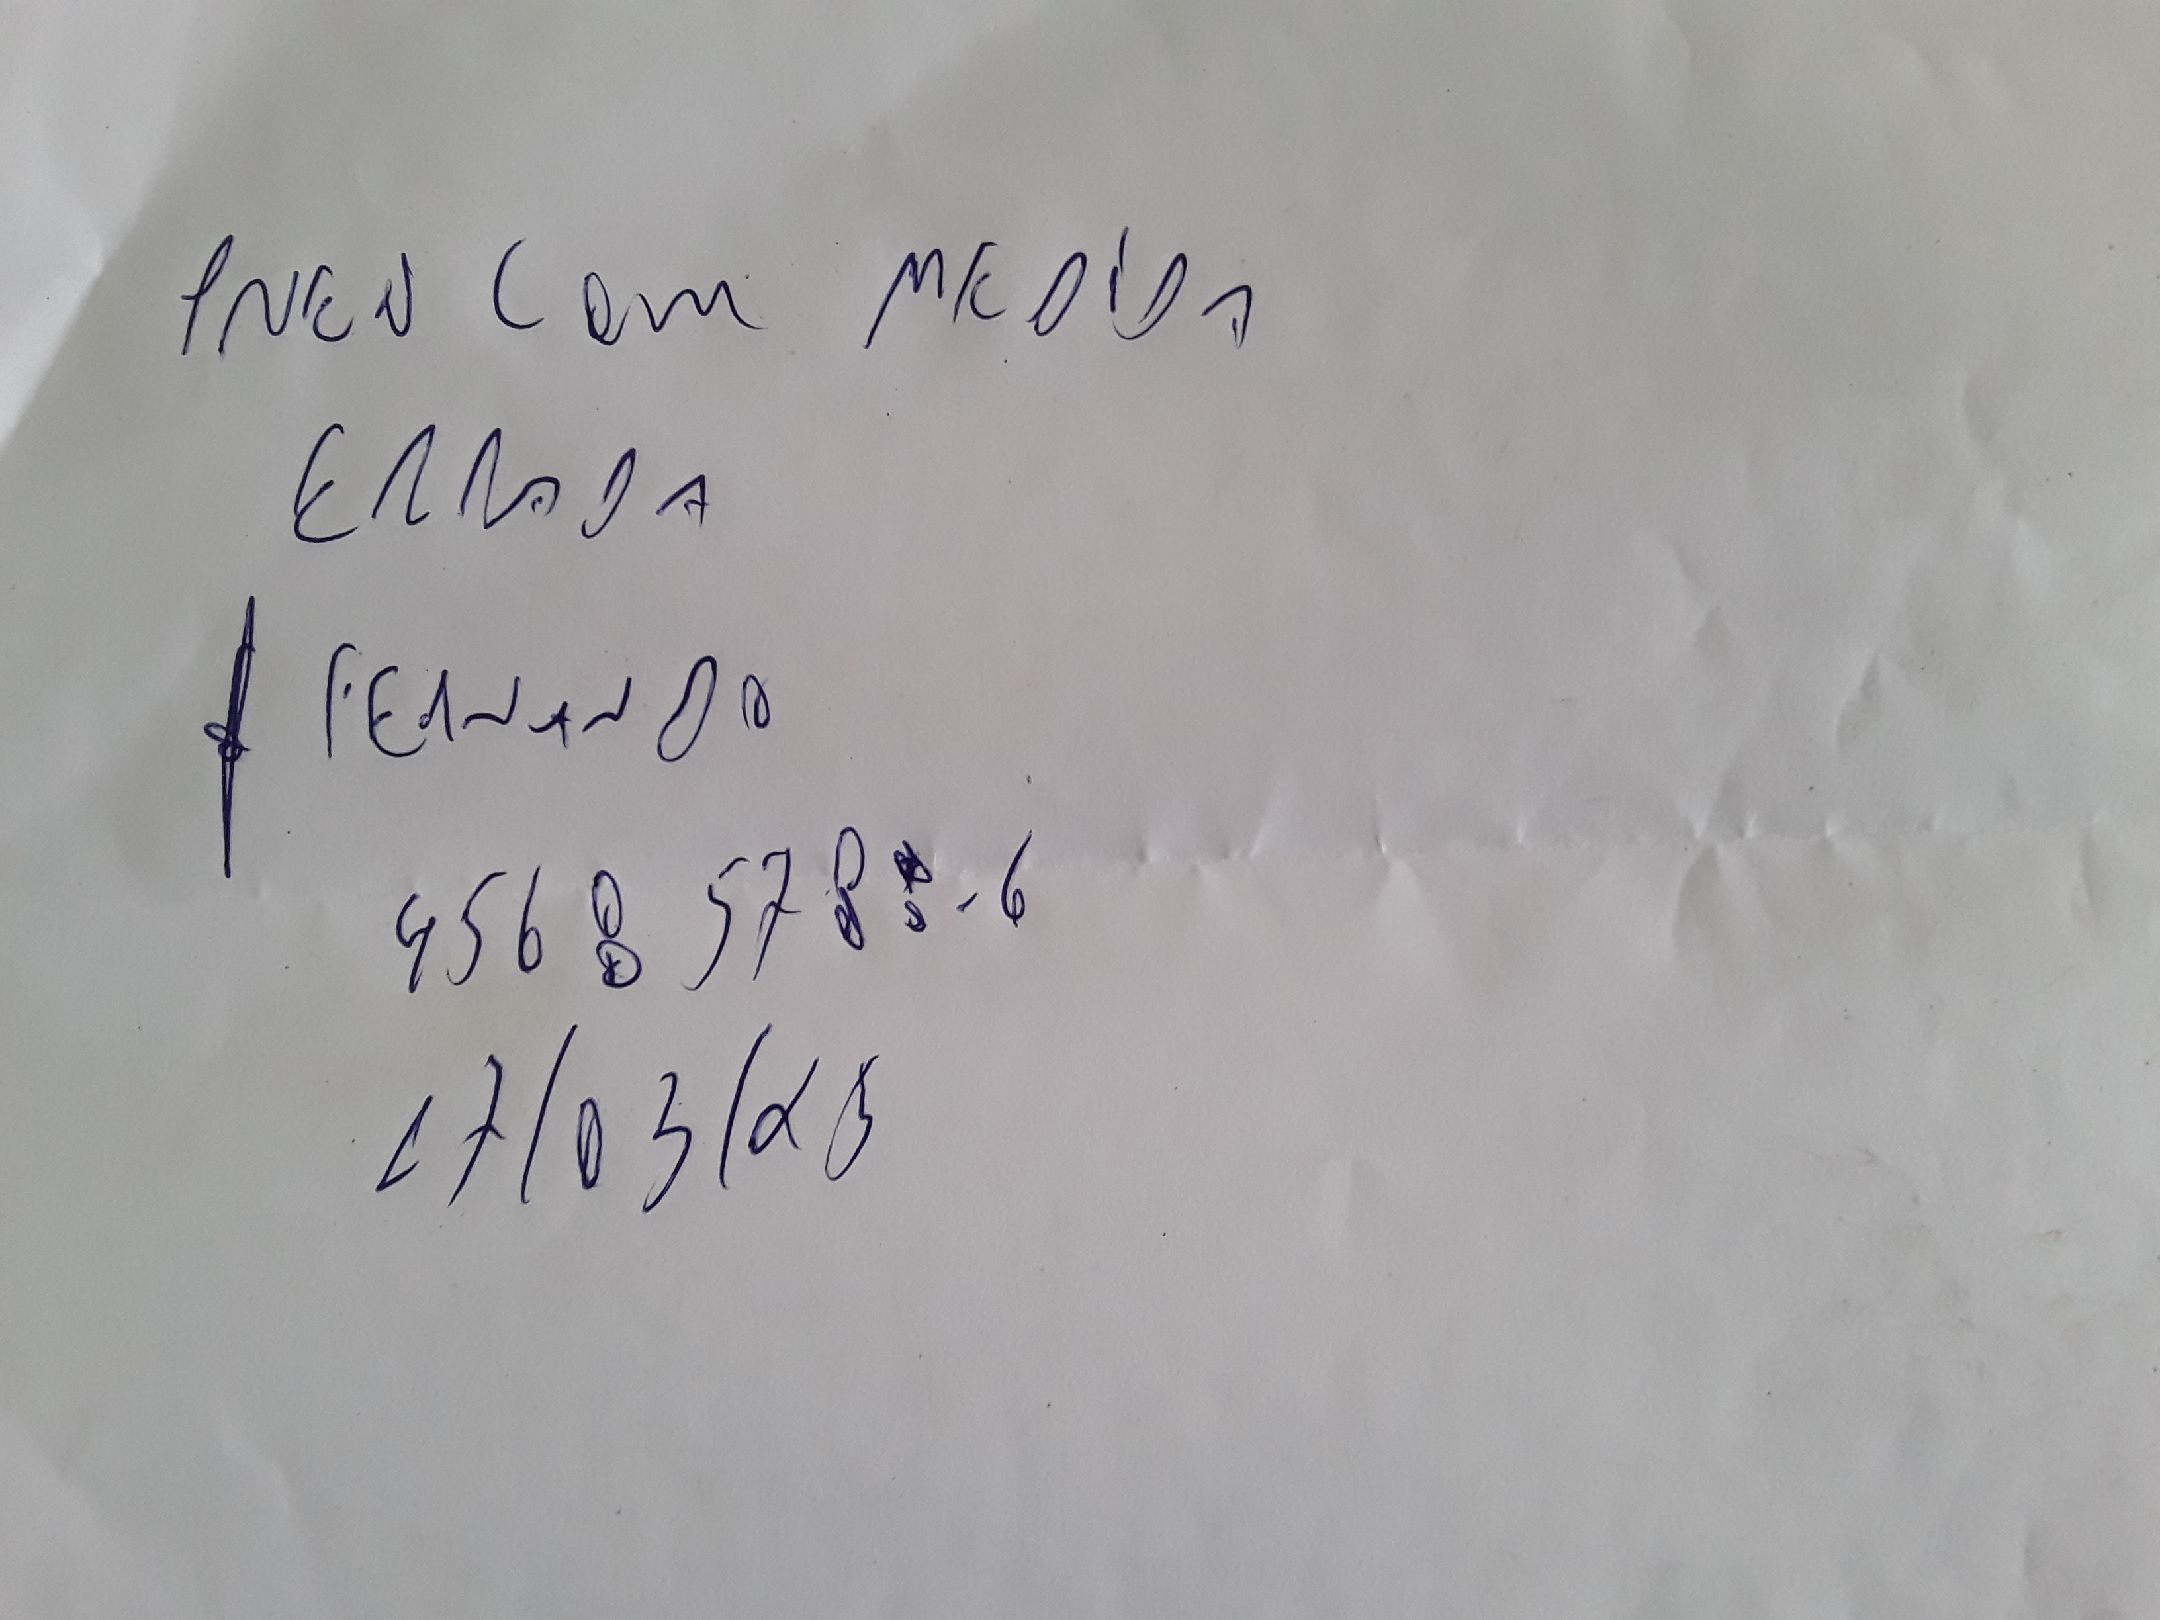 PNEU COM MEDIDA
ERRADA
FERNANDO
45685788-6
17/03/23